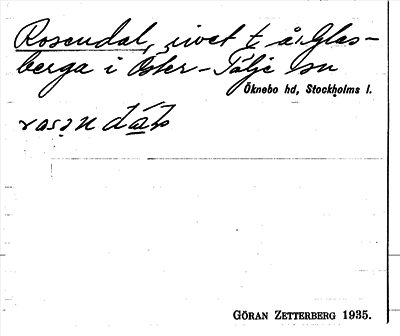 Rosendal, rivet t å: Glas-
berga i Öster-Tälje sn
Öknebo hd, Stockholms l.
rosən dɑ́ɫ
GÖRAN ZETTERBERG 1935.